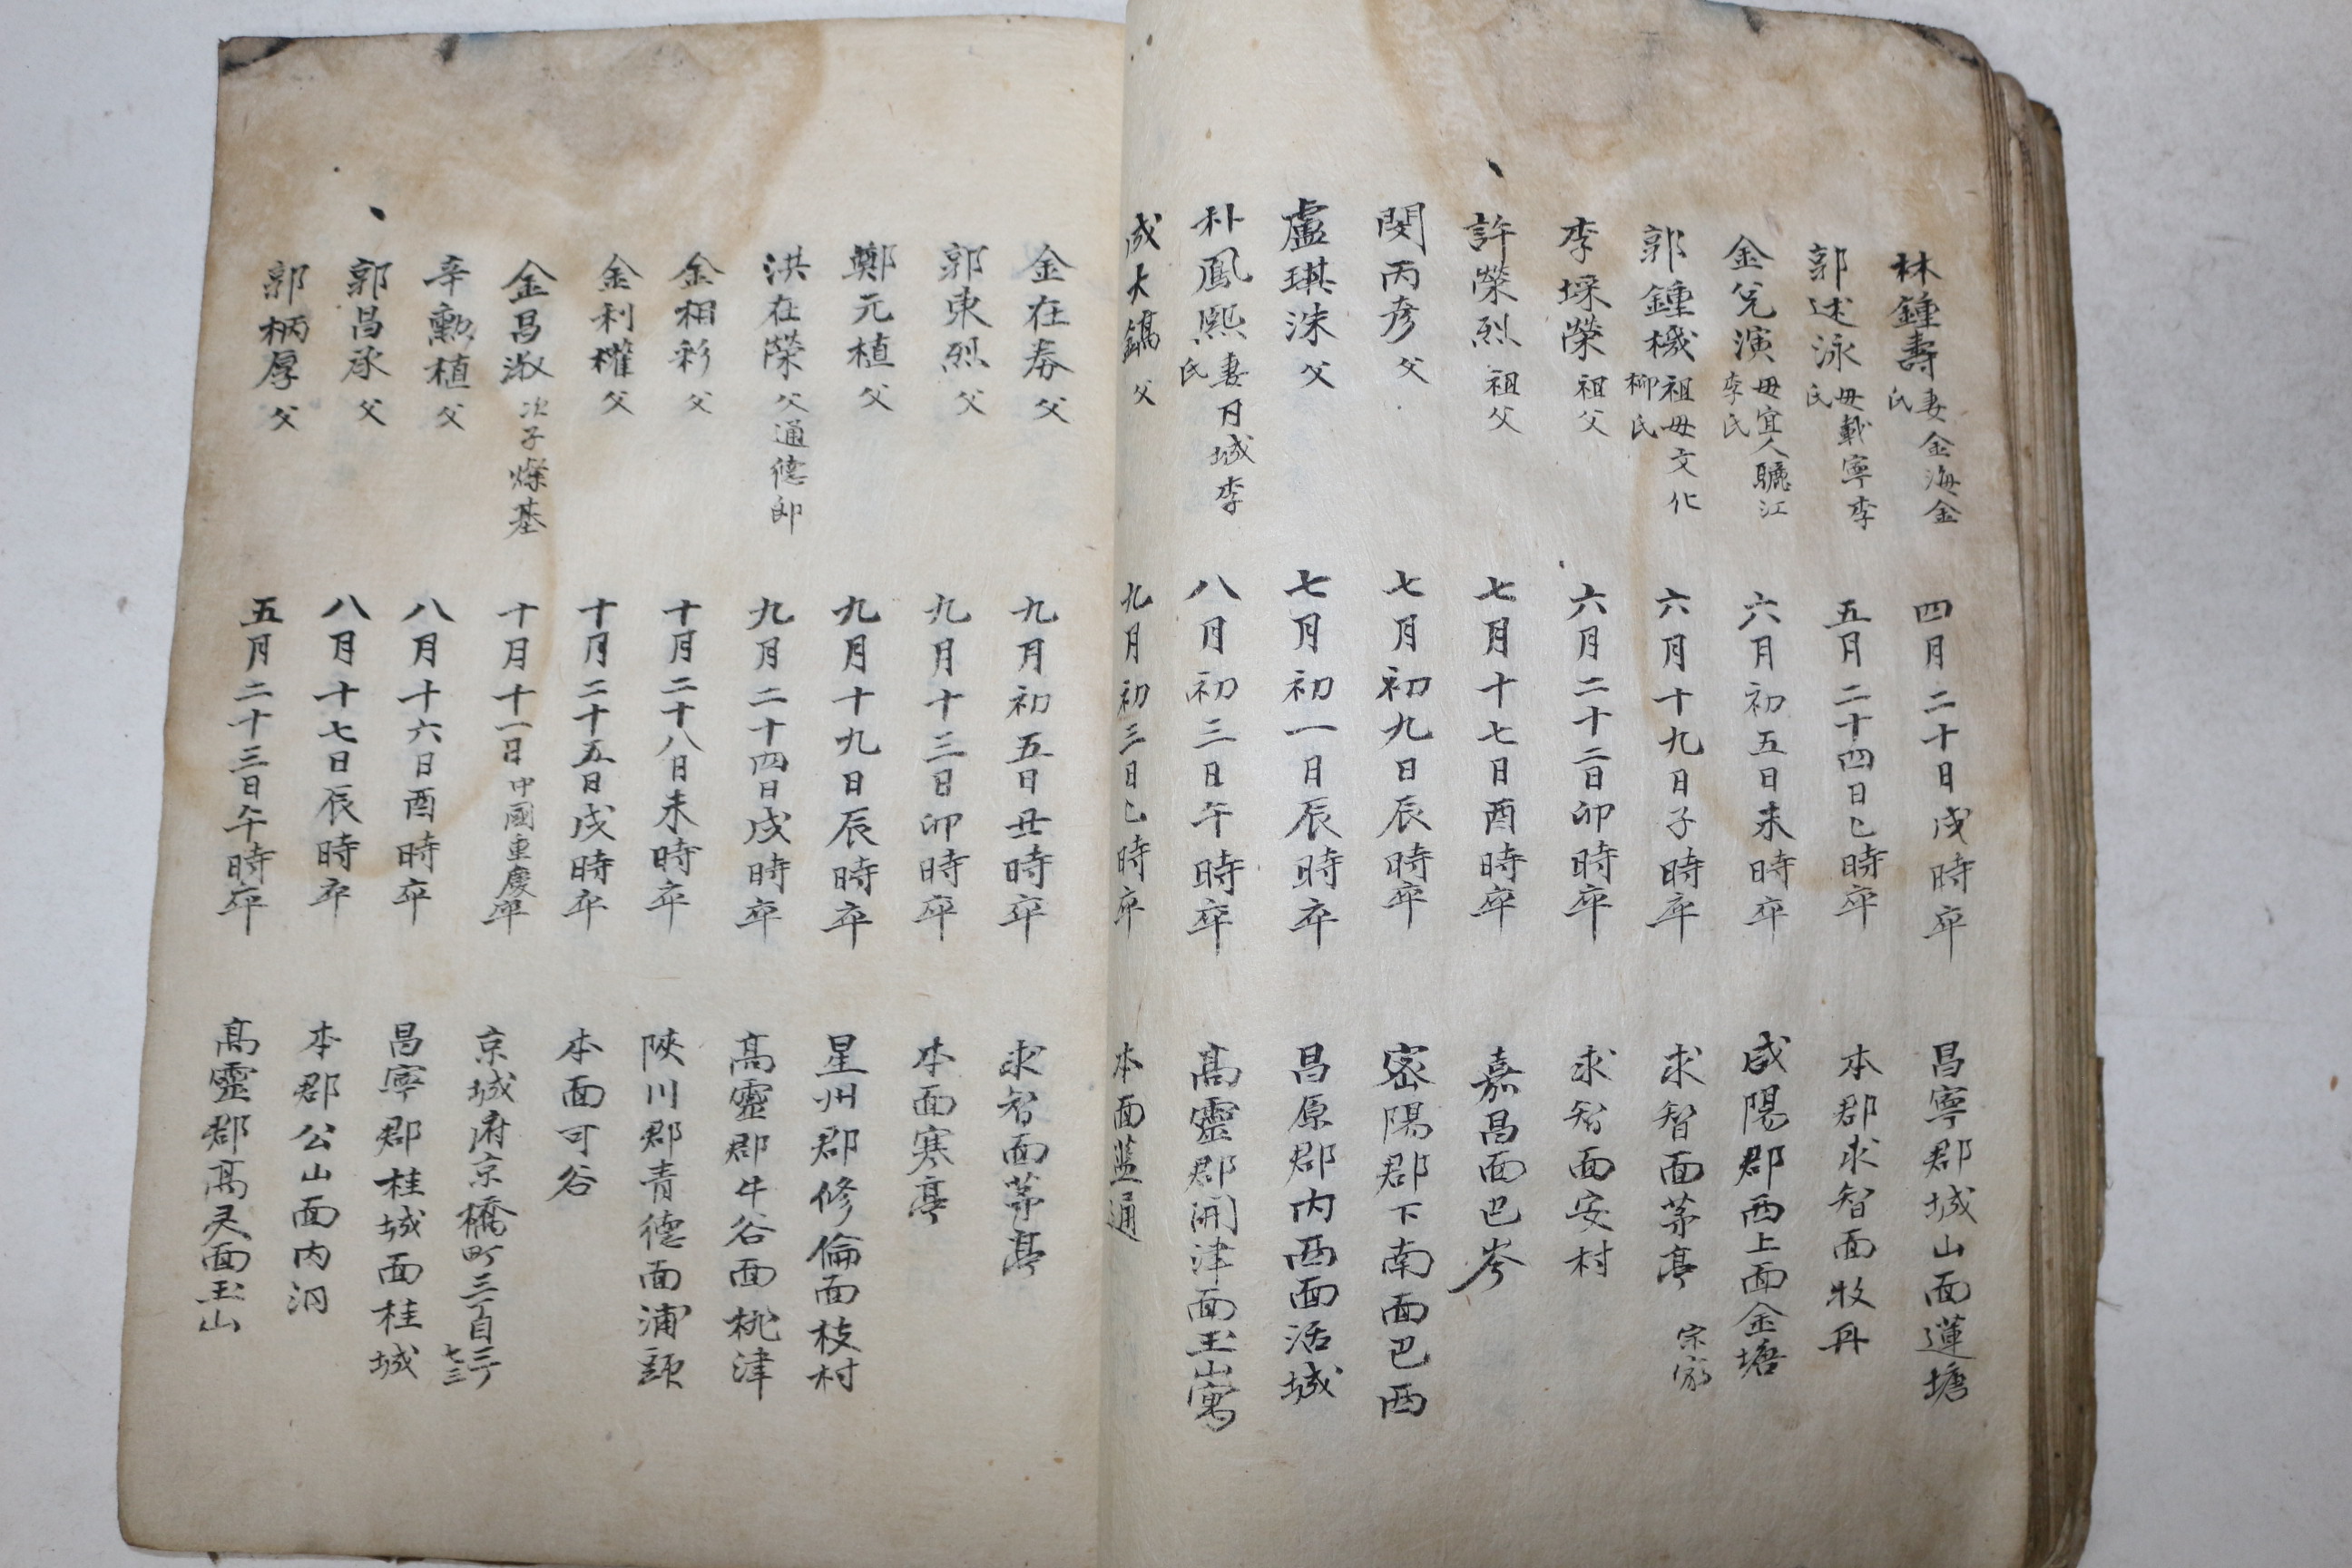 林鍾壽 妻金海金氏 四月二十日戌時卒 昌寧郡城山面蓮塘
郭述泳 母載寧李氏 五月二十四日巳時卒 本郡求智面牧丹
金兌演 母宜人驪江李氏 六月初五日未時卒 咸陽郡西上面金塘
郭鍾機 祖母文化柳氏 六月十九日子時卒 求智面茅亭 宗家
李埰榮 祖父 六月二十二日卯時卒 求智面安村
許榮烈 祖父 七月十七日酉時卒 嘉昌面巴岑
閔丙彦 父 七月初九日辰時卒 密陽郡下南面巴西
盧琪洙 父 七月初一日辰時卒 昌原郡内西面活城
朴鳳熙 妻月城李氏 八月初三日午時卒 高靈郡開津面玉山寓
成大鎬 父 九月初三日巳時卒 本面盖通
金在 父 九月初五日丑時卒 求智面茅亭
郭東烈 父 九月十三日卯時卒 本面寒亭
鄭元植 父 九月十九日辰時卒 星州郡修倫面枝村
洪在榮 父通德郎 九月二十四日戌時卒 高靈郡牛谷面桃津
金相彩 父 十月二十八日未時卒 陜川郡青德面浦頭
金利權 父 十月二十五日戌時卒 本面可谷
金昌淑 次子燦基 十月十一日中國重慶卒 京城府京橋町三百三 七三
辛勳植 父 八月十六日酉時卒 昌寧郡桂城面桂城
郭昌承 父 八月十七日辰時卒 本郡公山面内洞
郭柄厚 父 五月二十三日午時卒 高靈郡高灵面玉山